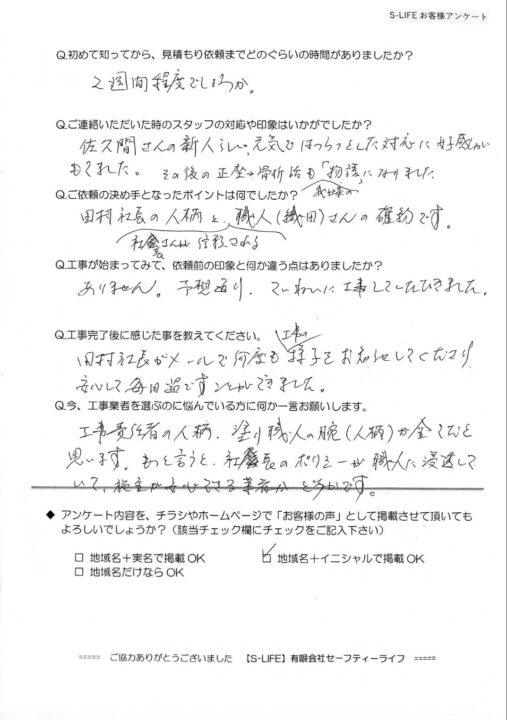 S-LIFE お客様アンケート
Q.初めて知ってから、見積もり依頼までどのぐらいの時間がありましたか？
2週間程度でしょうか。
Q.ご連絡いただいた時のスタッフの対応や印象はいかがでしたか？
佐久間さんの新人らしい、元気ではつらつとした対応に好感が
もてました。その後の正座→骨折話も「物語」になりました
Q.ご依頼の決め手となったポイントは何でしたか？
田村社長の人柄と、職人（織田）さんの確約です。
社長さんが信頼される
Q.工事が始まってみて、依頼前の印象と何か違う点はありましたか？
ありません。予想通り、ていねいに工事していただきました。
Q.工事完了後に感じた事を教えてください。
工事の
田村社長がメールで何度も様子をお知らせしてくださり
安心して毎日過ごすことができました。
Q.今、工事業者を選ぶのに悩んでいる方に何か一言お願いします。
工事責任者の人柄、塗り職人の腕（人柄）が全てだと
思います。もっと言うと、社長のポリシーが職人に浸透して
いて、施主が安心できる業者かどうかです。
◆ アンケート内容を、チラシやホームページで「お客様の声」として掲載させて頂いても
よろしいでしょうか？（該当チェック欄にチェックをご記入下さい）
□ 地域名＋実名で掲載 OK
☑ 地域名＋イニシャルで掲載 OK
□ 地域名だけなら OK
===== ご協力ありがとうございました 【S-LIFE】有限会社セーフティーライフ =====